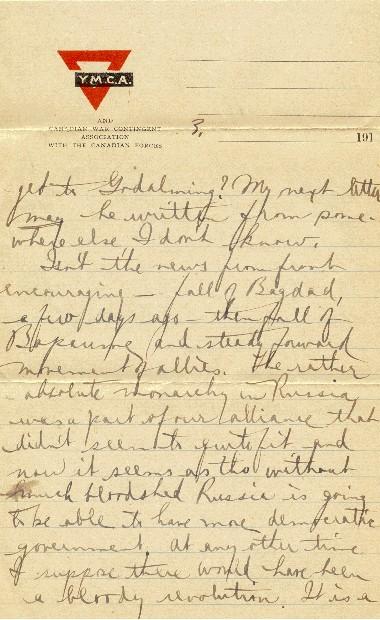 Y.M.C.A.
AND
CANADIAN WAR CONTINGENT
ASSOCIATION
WITH THE CANADIAN FORCES
3,
191
get to Godalming? My next letter
may be written from some-
where else I don't know.
Isn't the news from front
encouraging — fall of Bagdad,
a few days ago — then fall of
Bapaume and steady forward
movement of allies. The rather
absolute monarchy in Russia
was a part of our alliance that
didn't seem to quite fit and
now it seems as tho without
much bloodshed Russia is going
to be able to have more democratic
government. At any other time
I suppose there would have been
a bloody revolution. It is a